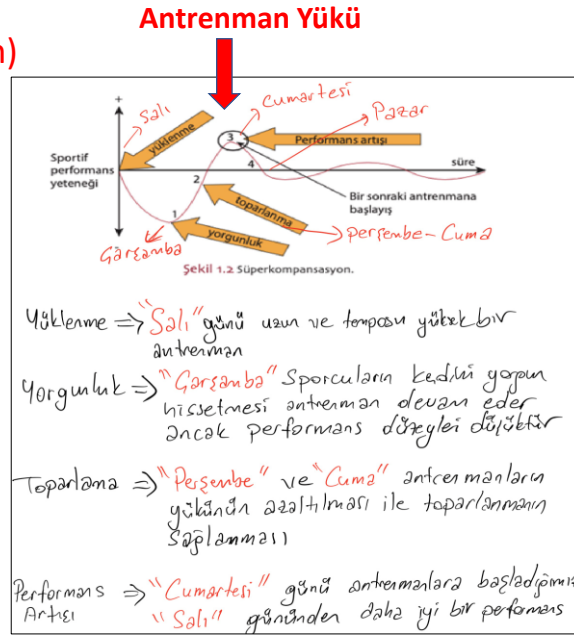 Antrenman Yükü
n)
Cumartesi
Salı
Pazar
+
yüklenme
3
Performans artışı
Sportif
performans
yeteneği
4
süre
2
Bir sonraki antrenmana
başlayış
toparlanma
1
yorgunluk
Perşembe-Cuma
Çarşamba
-
Şekil 1.2 Süperkompansasyon.
Yüklenme => "Salı" günü uzun ve temposu yüksek bir
antrenman
Yorgunluk => "Çarşamba" Sporcuların kedini yorgun
hissetmesi antrenman devam eder
ancak performans düzeylei düşüktür
Toparlama => "Perşembe" ve "Cuma" antrenmanların
yükünün azaltılması ile toparlanmanın
sağlanması
Performans => "Cumartesi" günü antrenmanlara başladığımız
Artışı "Salı" gününden daha iyi bir performans